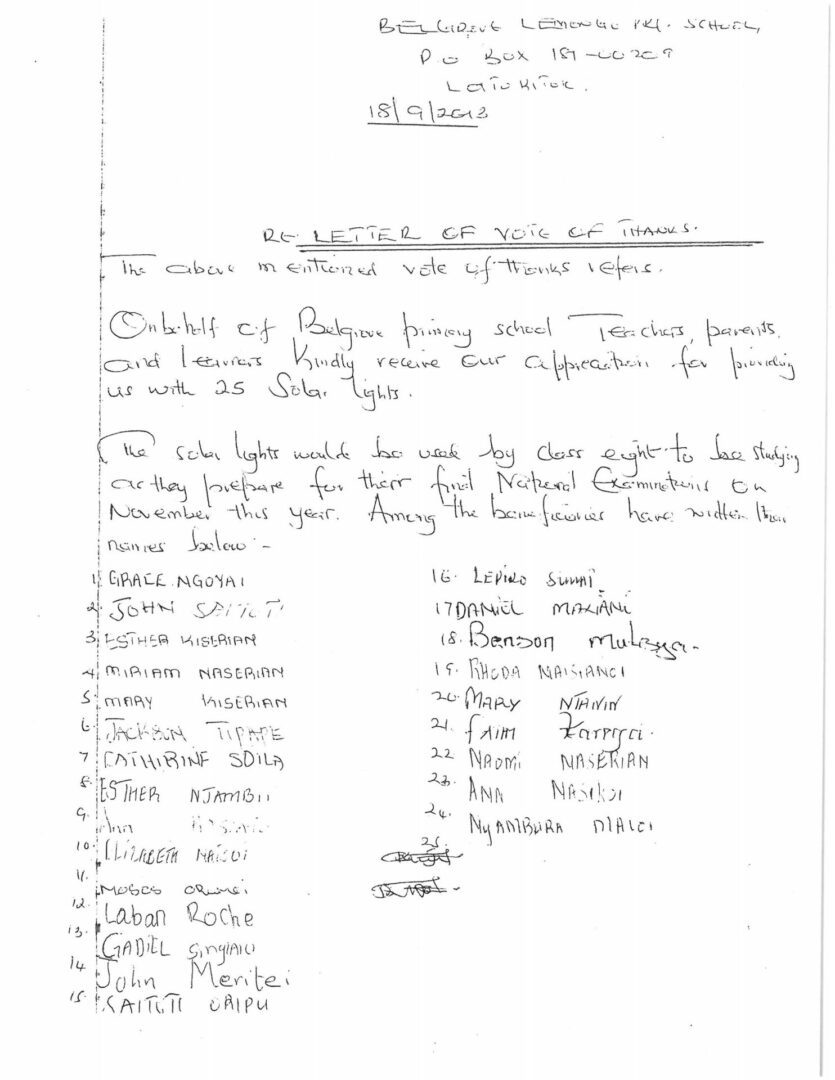 BELGROVE LEMONGO PRI. SCHOOL,
P.O BOX 187-00209
LOITOKITOK.
18/9/2013
RE LETTER OF VOTE OF THANKS.
The above mentioned vote of thanks refers.
On behalf of Belgrove primary school Teachers, parents,
and learners kindly receive our appreciation for providing
us with 25 Solar lights.
The solar lights would be used by class eight to be studying
as they prepare for their final National Examinations on
November this year. Among the beneficiaries have written their
names below:-
1. GRACE NGOYAI
2. JOHN SAITOTI
3. ESTHER KISERIAN
4. MIRIAM NASERIAN
5. MARY KISERIAN
6. JACKSON TIPAPE
7 CATHIRINE SOILA
8. ESTHER NJAMBII
9. Ann
10. ELIZABETH NAISOI
11. MOSES
12. Laban Roche
13. GADIEL
14 John Meritei
15. SAITOTI ORIPU
16. LEPIRO SUNAI
17 DANIEL MAXIANI
18. Benson
19. RHODA NAISIANOI
20. MARY
21. FAIM
22 NAOMI NASERIAN
23. ANA NASIKOI
24. NYAMBURA
25.